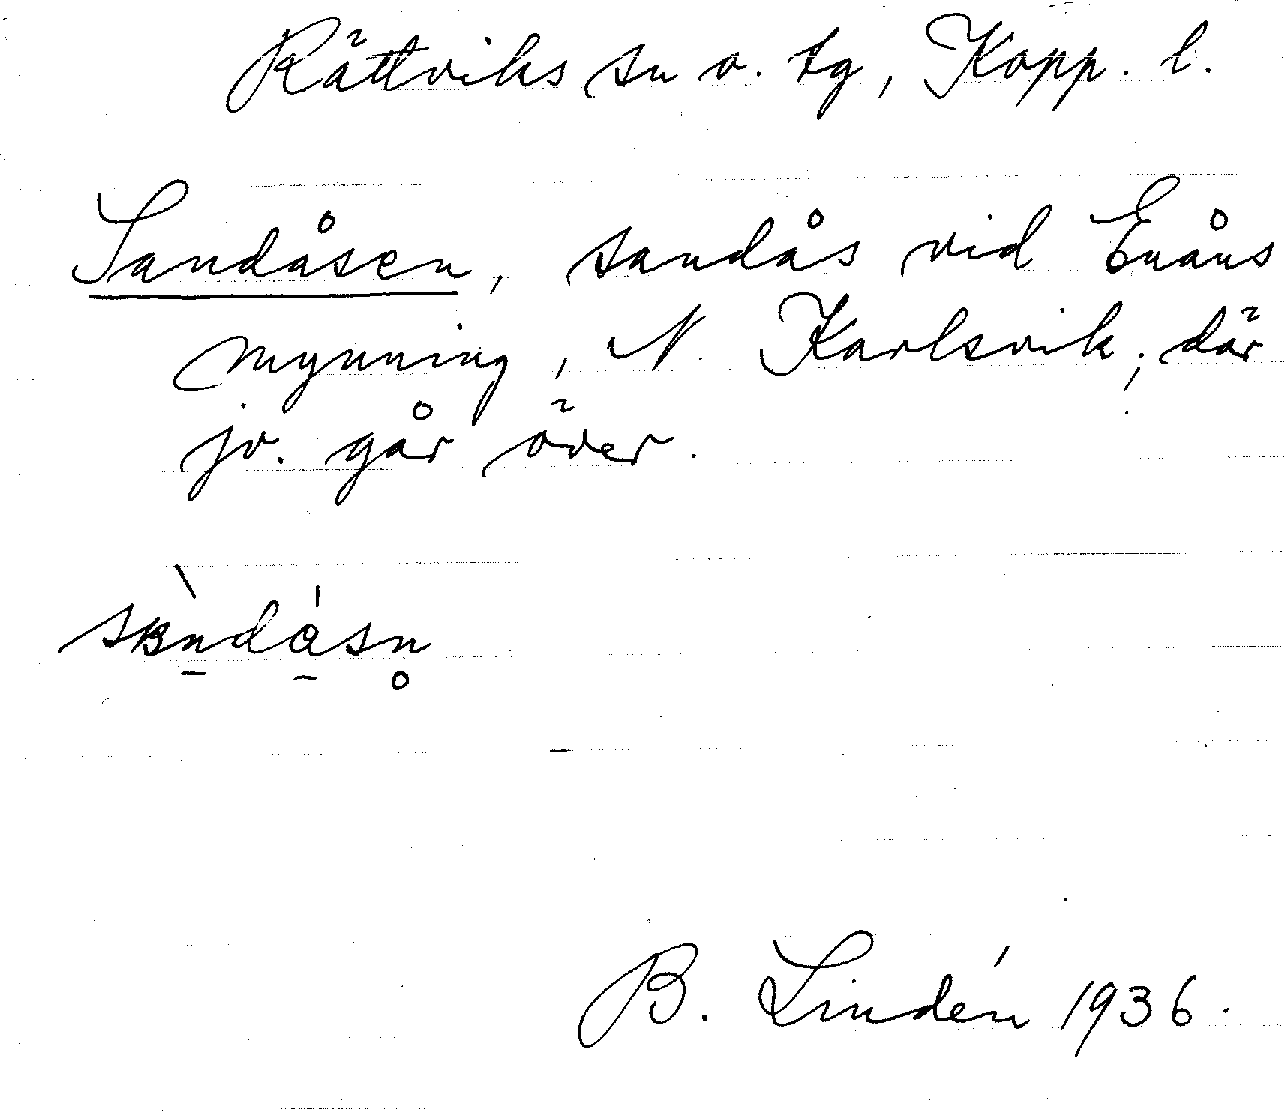 Rättviks sn o. tg, Kopp. l.
Sandåsen, sandås vid Enåns
mynning, N. Karlsvik; där
jv. går över.
B. Lindén 1936.